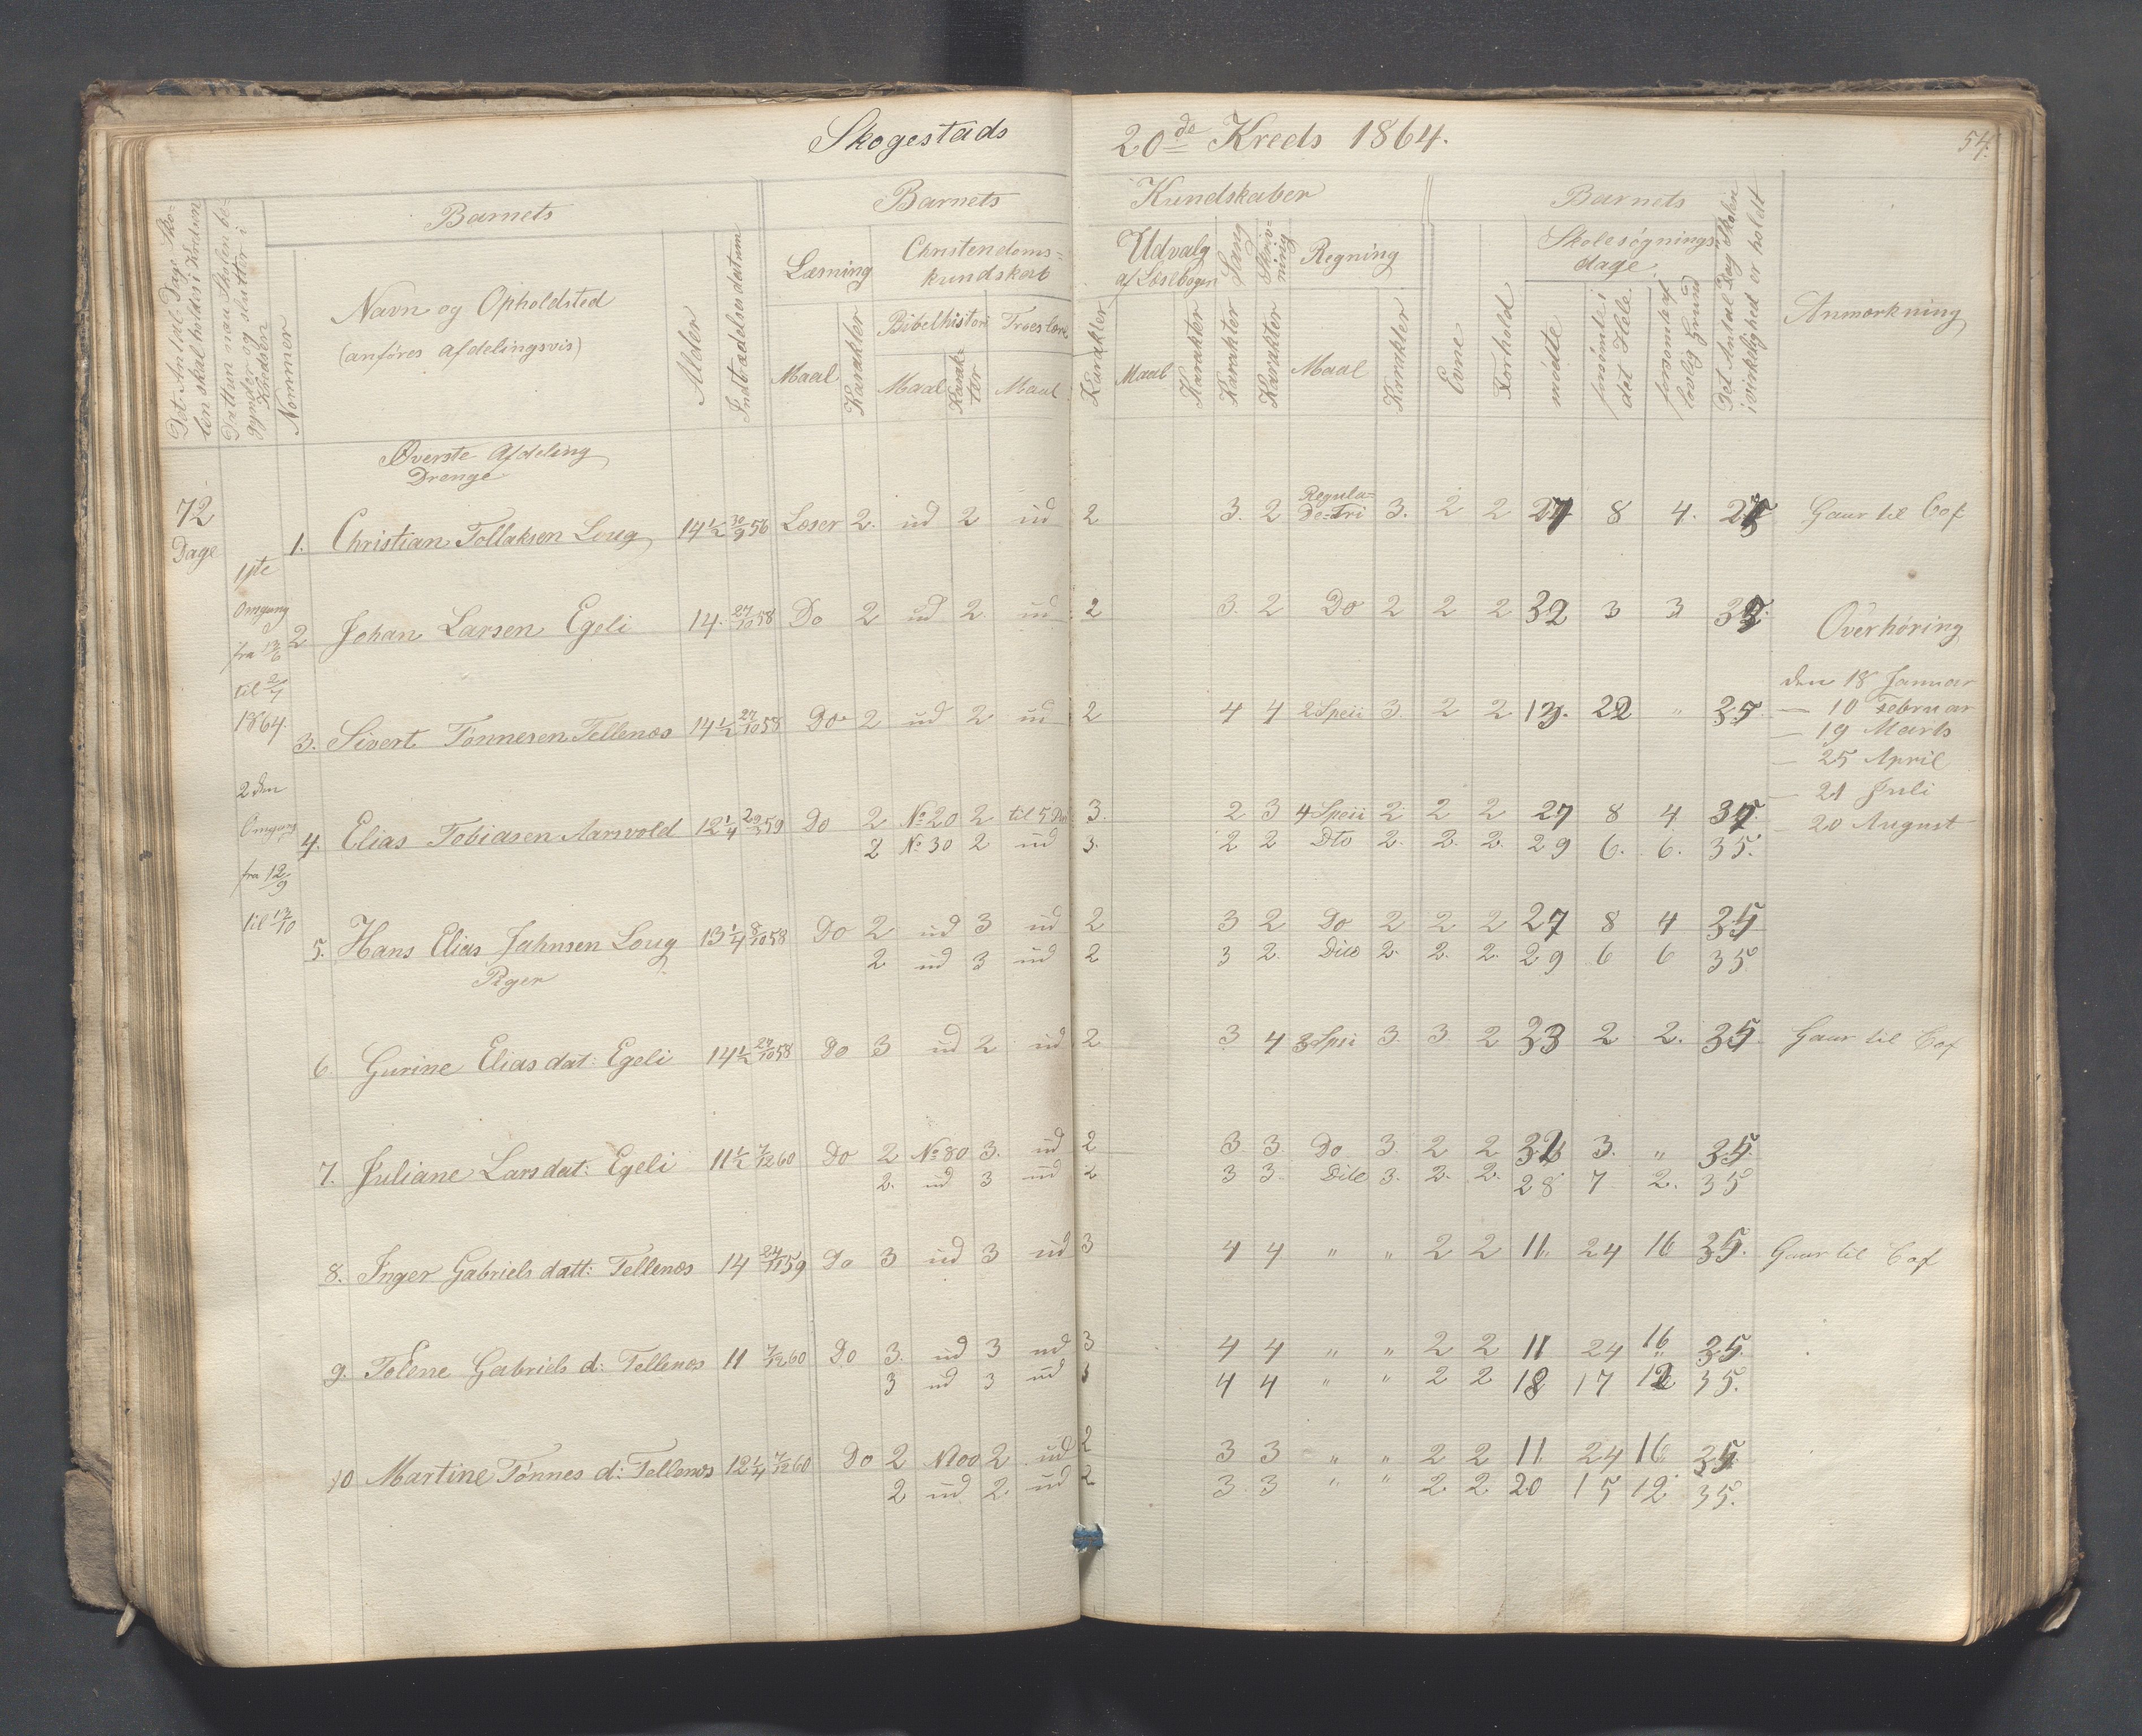 Skogestads 20de Kreds 1864.
54.
Det Antal Dage Skolen skal holdes i Kredsen
Datum naar Skolen begynder og slutter i Kredsen
Nommer
Barnets
Navn og Opholdsted
(anföres afdelingsvis)
Alder
Indtrædelsesdatum
Barnets Kundskaber
Læsning
Maal
Karakter
Christendomskundskab
Bibelhistori
Maal
Karakter
Troeslære
Maal
Karakter
Udvalg af Læsebogen
Maal
Karakter
Sang
Karakter
Skrivning
Karakter
Regning
Maal
Karakter
Barnets
Evne
Forhold
Skolesögningsdage
mödte
forsömte i det Hele
forsömte af lovlig Grund
Det Antal Dag Skolen i virkelighed er holdt
Anmærkning
Överste Afdeling
Drenge
72 Dage
1ste
Omgang
til 2/7
1864.
2den
Omgang
fra 12/9
til 13/10
1. Christian Tollaksen Loug 14 1/2 30/9 56 Læser 2. ud 2 ud 2 3. 2 Regulade-Tri 3. 2 2 8 4. Gaar til Cof
2 Johan Larsen Egeli 14. 27/10 58 Do 2 ud 2. ud 2 3. 2 Do 2 2 2 32 3 3 35. Overhöring
den 18 Januar
— 10 Februar
— 19 Marts
— 25 April
— 21 Juli
— 20 August
3. Sivert Tönnesen Tellenæs 14 1/2 27/10 58 Do 2 ud 2 ud 2 4 4 2 Speii 3. 2 2 13. 22 " 35
4. Elias Tobiasen Aarsvold 12 1/4 59 Do 2 No 20 2 til 5 3. 2 3 4 Speii 2 2 2 27 8 4 35.
2 No 30 2 ud 3. 2 2 Dto 2. 2. 2. 29 6. 6. 35.
5. Hans Elias Jahnsen Loug 13 1/4 8/10 58 Do 2 ud 3 ud 2 3 2 Do 2 2 2 27 8 4 35
2 ud 3 ud 2 3 2. Dito 2. 2. 2. 29 6 6 35
Piger
6. Gurine Elias dat: Egeli 14 1/2 27/10 58 Do 3 ud 2 ud 2 3 4 3 Speii 3. 3. 2 33 2 2. 35. Gaar til Cof
7. Juliane Lars dat: Egeli 11 1/2 7/12 60 Do 2 No 80 3. ud 2 3 3 Do 3. 2 2 32 3. " 35.
2. ud 3 ud 2 3 3. Dito 3. 2. 2. 28 7 2. 35
8. Inger Gabriels datt: Tellenæs 14 24/11 59 Do 3 ud 3 ud 3 4 4 " " 2 2 11 24 16 35. Gaar til Cof
9. Tolene Gabriels d: Tellenæs 11 7/12 60 Do 3. ud 3 ud 3 4 4 " " 2 2 11 24 16 35.
3 ud 3 ud 3 4 4 " " 2 2 18 17 12 35.
10 Martine Tönnes d: Tellenæs 12 1/4 7/12 60 Do 2 2 ud 2 3 3 " " 2 2 11 24 16 35.
2 ud 2. ud 2 3. 3 " " 2 2 20 15 12 35.